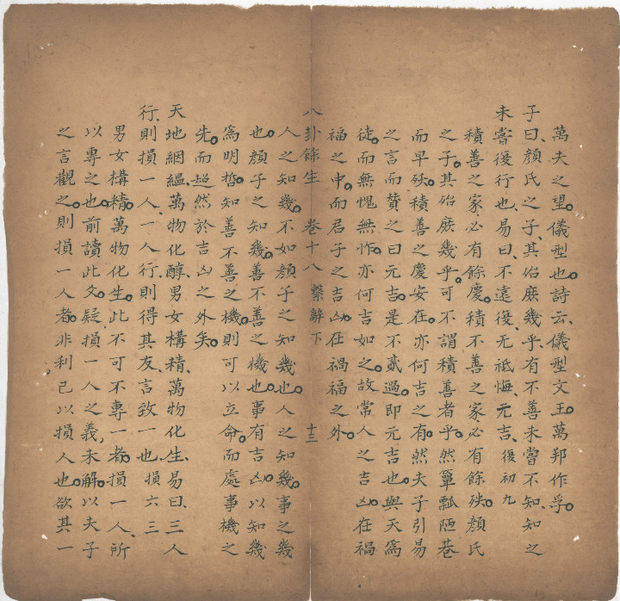 萬夫之望儀型也詩云儀型文王萬邦作孚
子曰顏氏之子其殆庶幾乎有不善未嘗不知知之
未嘗復行也易曰不遠復无祗悔元吉復初九
積善之家必有餘慶積不善之家必有餘殃顏氏
之子其殆庶幾乎可不謂積善者乎然簞瓢陋巷
而早殀積善之慶安在亦何吉之有然夫子引易
之言而贊之曰元吉是不貳過即元吉也與天為
徒而無愧無怍亦何吉如之故常人之吉凶在禍
福之中而君子之吉凶在禍福之外
八卦餘生 卷十八 繫辭下 十三
人之知幾不如顏子之知幾也人之知幾事之幾
也顏子之知幾善不善之機也事有吉凶以知幾
為明哲知善不善之機則可以立命而處事機之
先而超然於吉凶之外矣
天地絪縕萬物化醇男女構精萬物化生易曰三人
行則損一人一人行則得其友言致一也損六三
男女構精萬物化生此不可不專一者損一人所
以專之也前讀此爻疑損一人之義未解以夫子
之言觀之則損一人者非利己以損人也欲其一